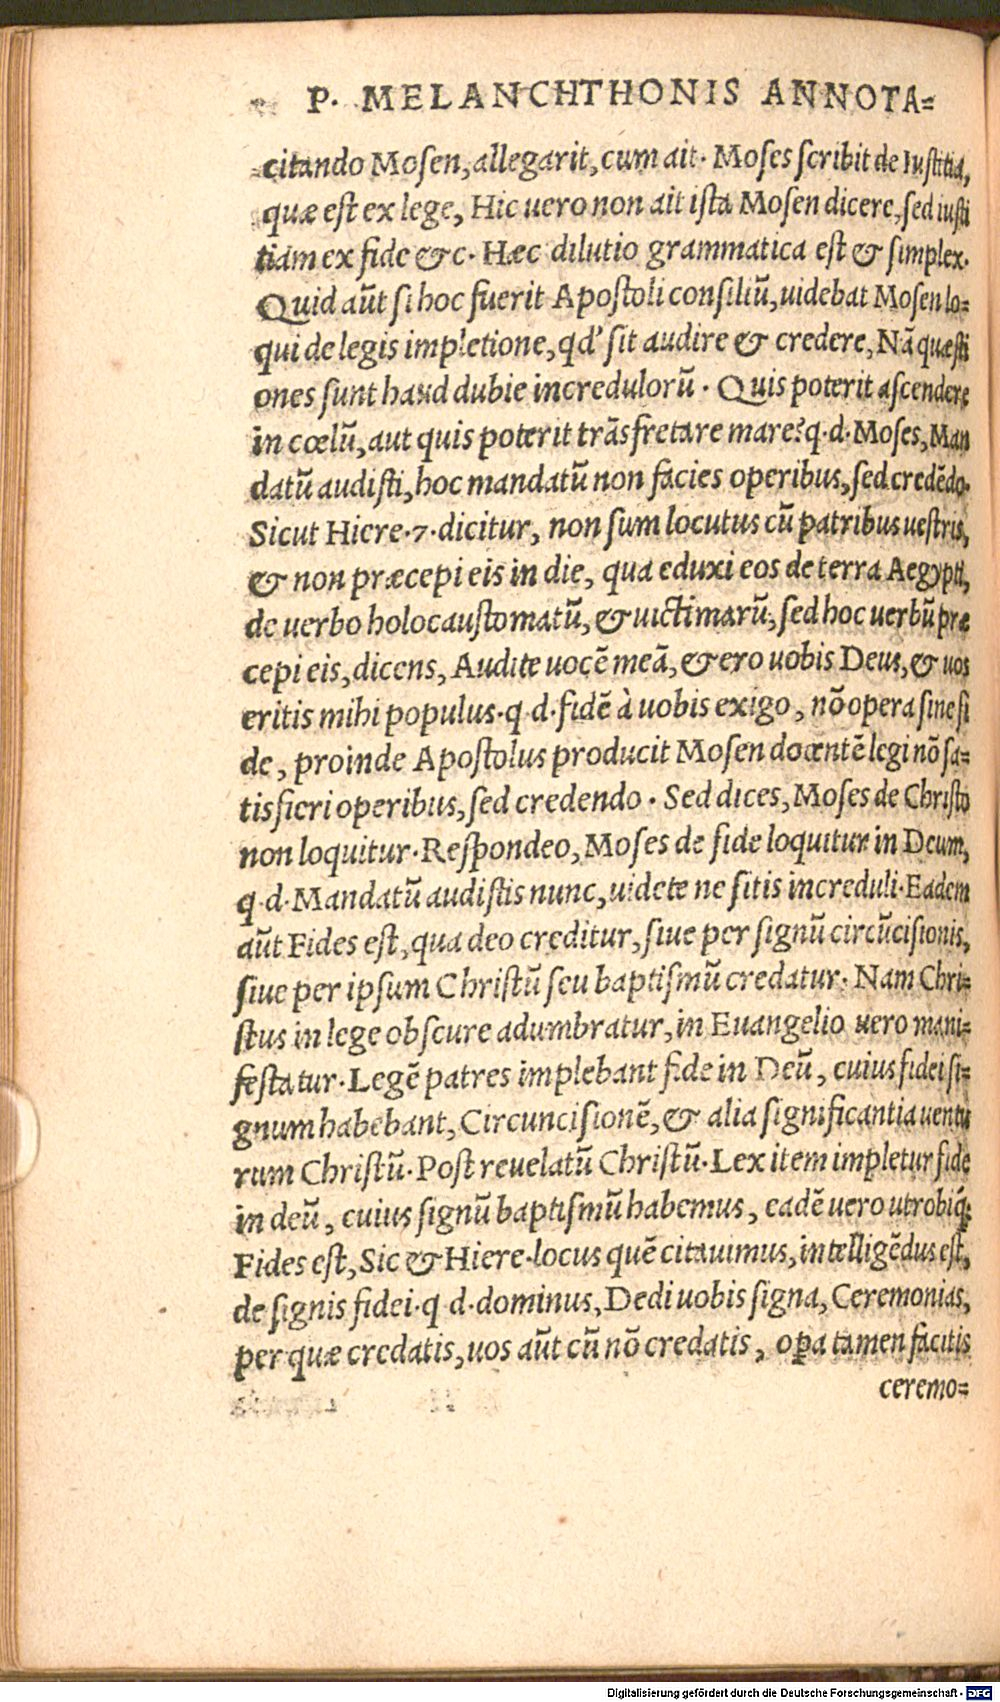 P. MELANCHTHONIS ANNOTA=
citando Moſen, allegarit, cum ait. Moſes ſcribit de Iuſtitia,
quæ eſt ex lege, Hic uero non ait iſta Moſen dicere, ſed iuſti
tiam ex fide & c. Hæc dilutio grammatica eſt & ſimplex.
Quid aūt ſi hoc fuerit Apoſtoli conſiliū, uidebat Moſen lo=
qui de legis impletione, qd' ſit audire & credere, Nā quæſti
ones ſunt haud dubie incredulorū. Quis poterit aſcendere
in cœlū, aut quis poterit trāsfretare mare? q.d. Moſes, Man
datū audiſti, hoc mandatū non facies operibus, ſed credēdo.
Sicut Hiere. 7. dicitur, non ſum locutus cū patribus ueſtris,
& non præcepi eis in die, qua eduxi eos de terra Aegypti,
de uerbo holocauſtomatū, & uictimarū, ſed hoc uerbū præ
cepi eis, dicens, Audite uocē meā, & ero uobis Deus, & uos
eritis mihi populus. q d. fidē à uobis exigo, nō opera ſine fi
de, proinde Apoſtolus producit Moſen docentē legi nō ſa=
tisfieri operibus, ſed credendo. Sed dices, Moſes de Chriſto
non loquitur. Reſpondeo, Moſes de fide loquitur in Deum,
q d. Mandatū audiſtis nunc, uidete ne ſitis increduli. Eadem
aūt Fides eſt, qua deo creditur, ſiue per ſignū circūciſionis,
ſiue per ipſum Chriſtū ſeu baptiſmū credatur. Nam Chri=
ſtus in lege obſcure adumbratur, in Euangelio uero mani=
feſtatur. Legē patres implebant fide in Deū, cuius fidei ſi=
gnum habebant, Circunciſionē, & alia ſignificantia uentu
rum Chriſtū. Poſt reuelatū Chriſtū. Lex item impletur fide
in deū, cuius ſignū baptiſmū habemus, eadē uero utrobiq́;
Fides eſt, Sic & Hiere. locus quē citauimus, intelligēdus eſt,
de ſignis fidei. q d. dominus, Dedi uobis ſigna, Ceremonias,
per quæ credatis, uos aūt cū nō credatis, oꝑa tamen facitis
ceremo=
Digitalisierung gefördert durch die Deutsche Forschungsgemeinschaft - DFG